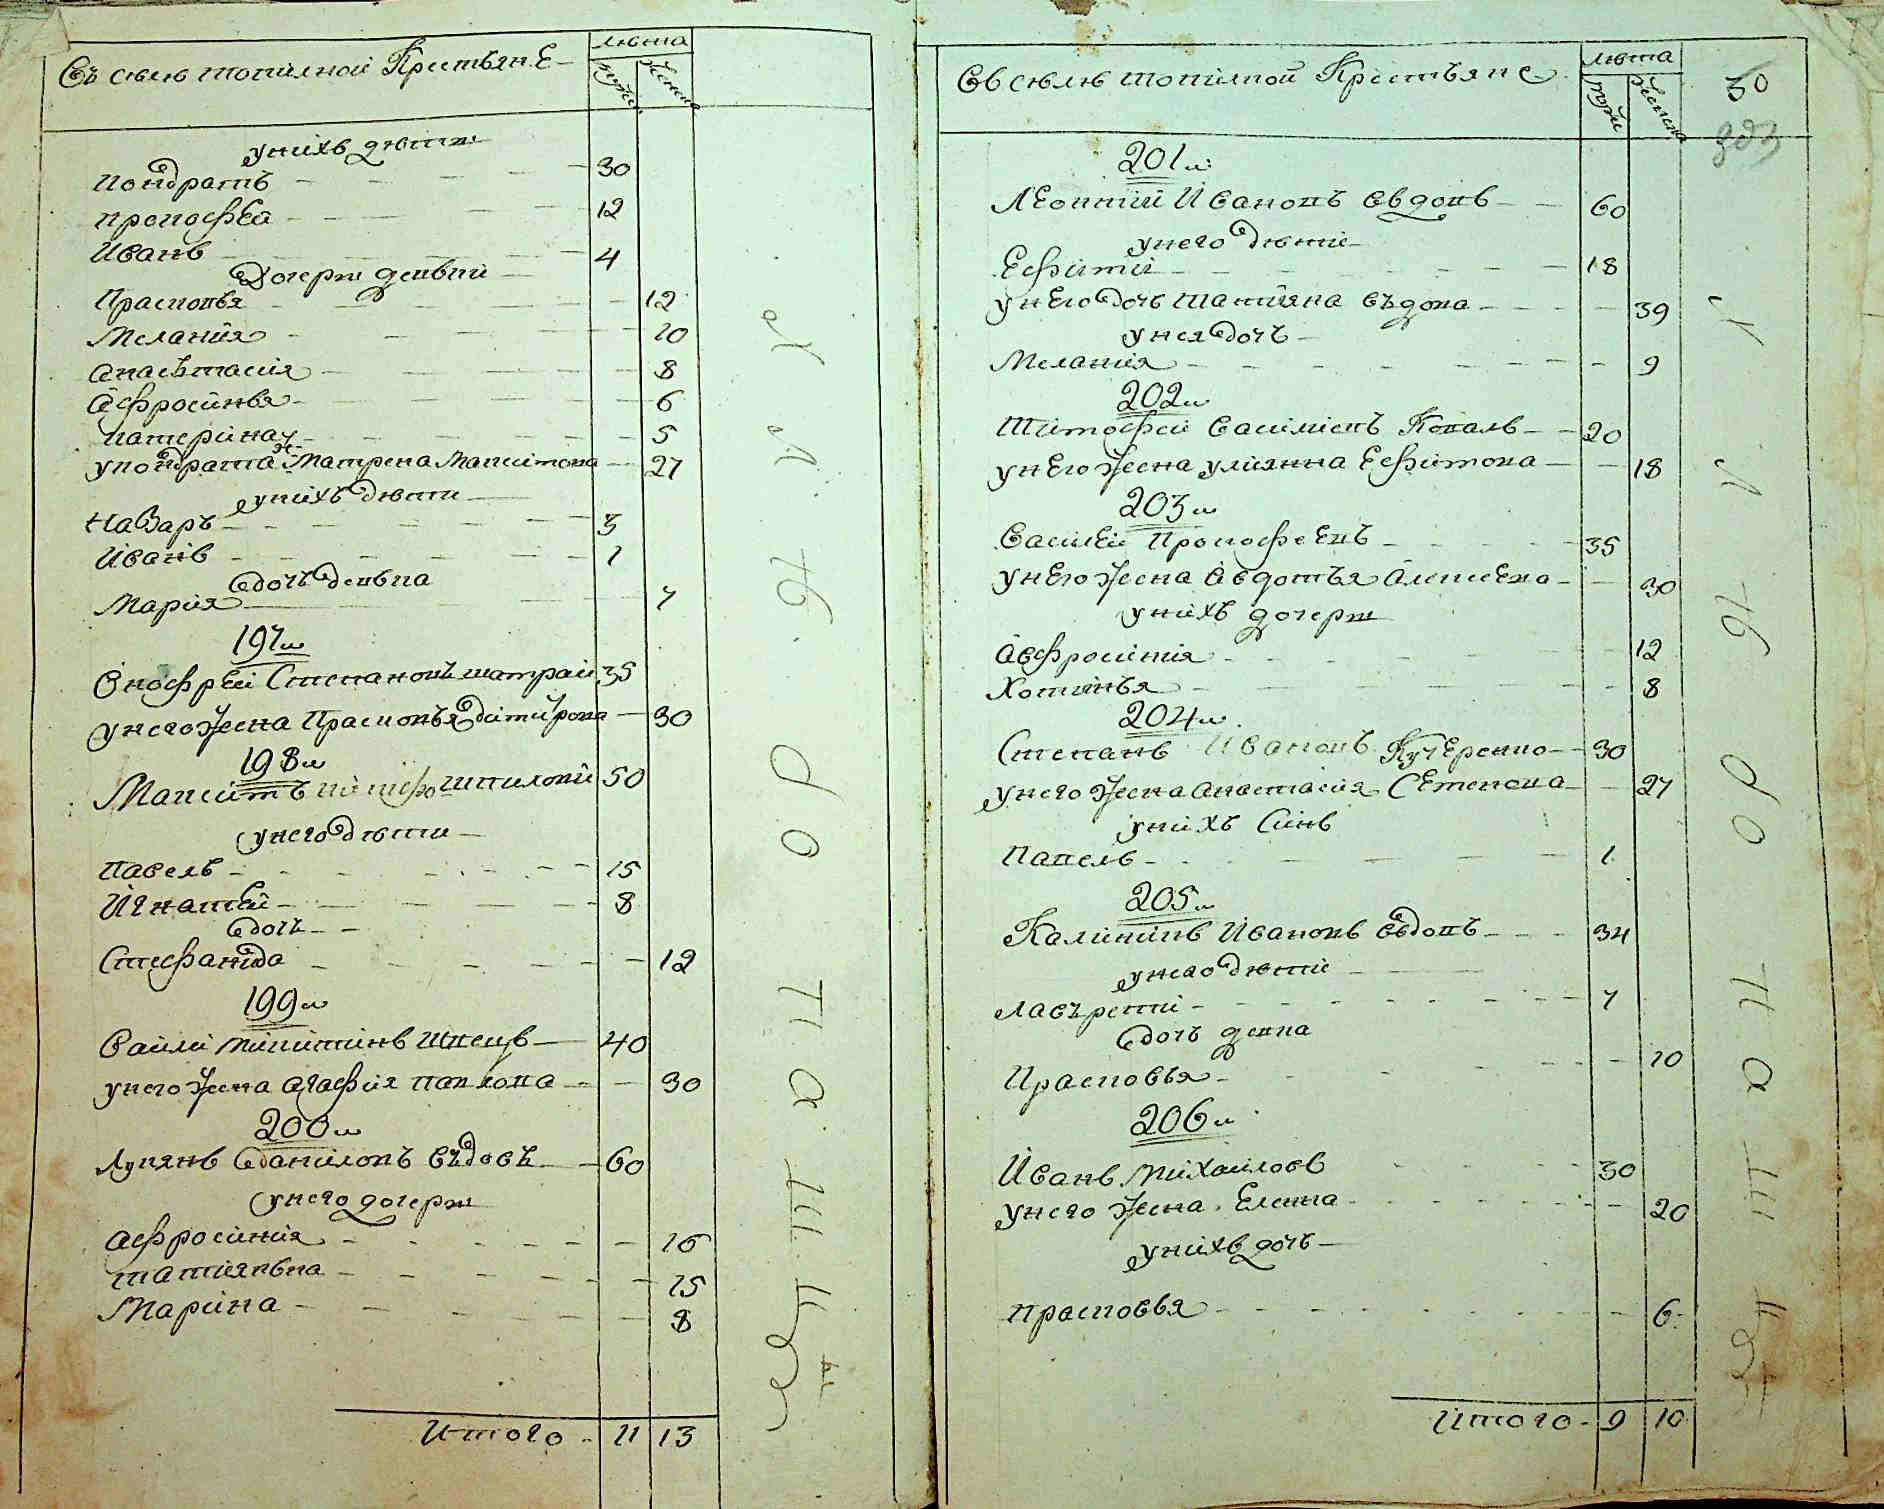 Въ селѣ топилной Крестьяне
лѣта
мужи
женска
у нихъ дѣти
Кондратъ 30
Прокофеа 12
Иванъ 4
Дочери девкы
Прасковья 12
Мелания 10
Анасътасия 8
Ефросинья 6
Катерина 5
у кондрата ж: Матрена Макситова 27
у нихъ дѣти
Назаръ 3
Иванъ 1
дочь девка
Мария 7
197 и
Онофрей Степановъ шатрай 35
у него жена Прасковья 30
198 и
Максимъ 50
у него дѣти
Павелъ 15
Игнатей 8
дочь
Стефанида 12
199 и
Васили Микитинъ Швецъ 40
у него жена агафия павлова 30
200 и
Лукянъ Даниловъ въдовъ 60
у него дочери
Афросиния 16
татияньна 15
Марина 8
Итого 11 13
Въ селѣ топилной Крестьяне
лѣта
мужи
женска
50
201 и
Леонтий Ивановъ вдовъ 60
у него дѣти
Ефими 18
у него дочь татияна въдова 39
у нея дочь
Мелания 9
202 и
Тимофей Василиевъ Коваль 20
у него жена улиянна Ефимова 18
203 и
Василей Прокофевъ 35
у него жена Авдотья Алексеева 30
у нихъ дочери
Авфросиния 12
Хотинья 8
204 и
Степанъ Ивановъ Кучеренко 30
у него жена анастасия Семенова 27
у нихъ Синъ
Павелъ 1
205 и
Калининъ Ивановъ вдовъ 34
у него дѣти
Лавъренти 7
дочь девка
Прасковья 10
206 и
Иванъ Михаиловъ 30
у него жена Еленна 20
у нихъ дочь
прасковья 6
Итого 9 10